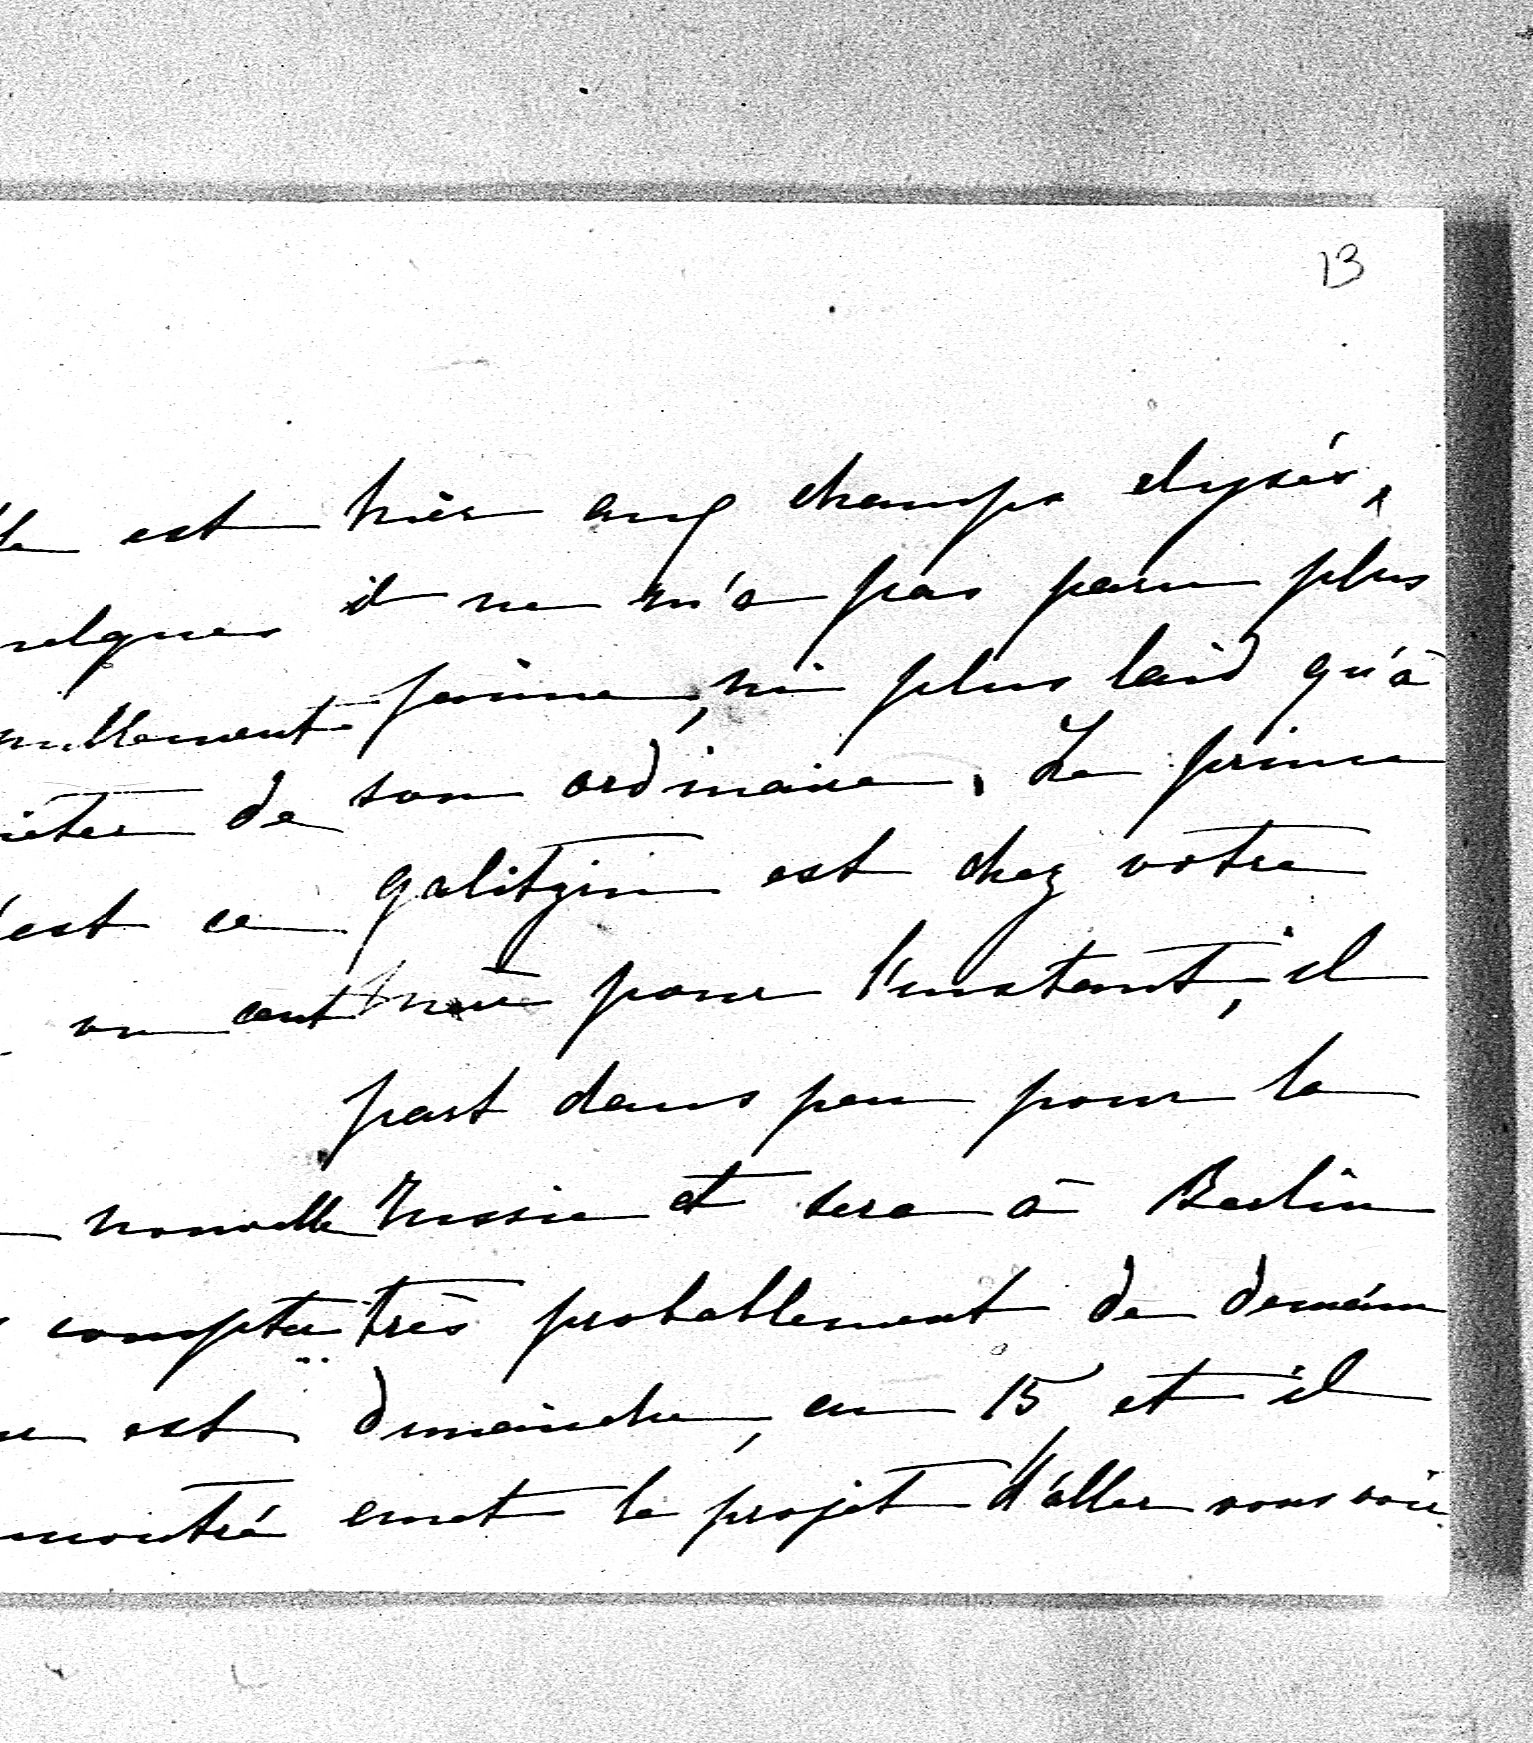 13
est
hier aux champs elysés,
il ne m'a pas paru plus
jaune, ni plus laid qu'à
nullement
son ordinaire. Le prince
de
galitzin est chez votre
est ce
pour l'instant, il
on
part dans peu pour la
nouvelle
russie et sera à Berlin
compter
très probablement de demain
est
dimanche, en 15, et il
montré
emet le projet d'aller vous voir.